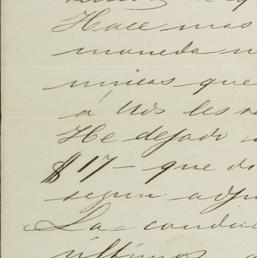 Hace mas
moneda n
micas que
á Uds les re
He dejado
$17 - que d
segun adju
La condu
últimos